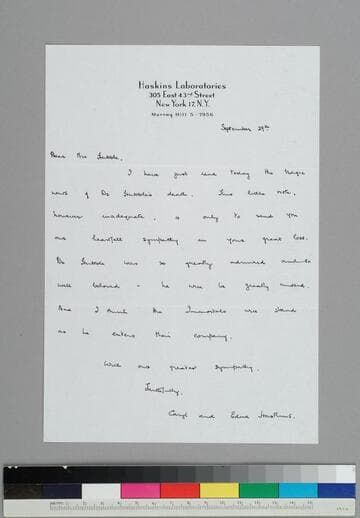 Haskins Laboratories
305 East 43rd Street
New York 17, N.Y.
Murray Hill 5-7956
September 29th
Dear Mrs Hubble,
I have just seen today the tragic
news of Dr Hubble's death. This little note,
however inadequate, is only to send you
our heartfelt sympathy in your great loss.
Dr Hubble was so greatly admired and
well beloved - he will be greatly missed.
And I think the Immortals will stand
as he enters their company.
With our greatest sympathy.
Faithfully,
Caryl and Edna Haskins.